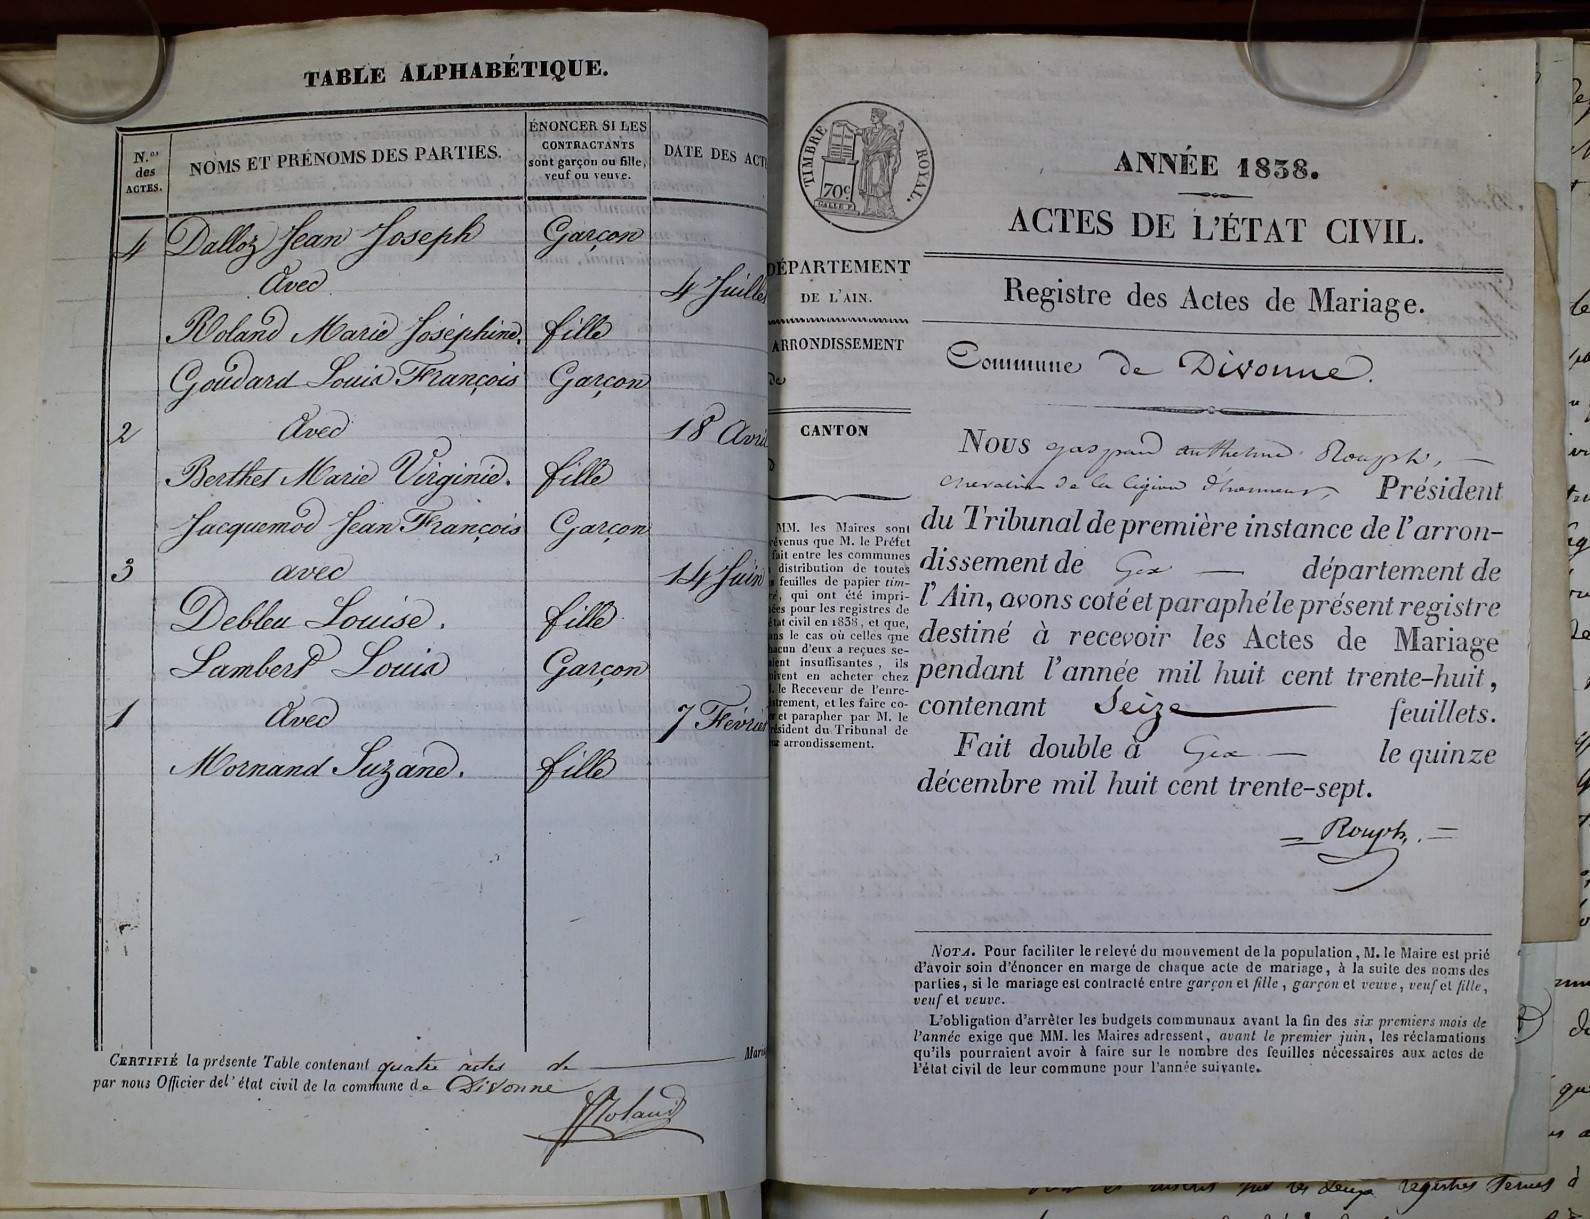 TABLE ALPHABÉTIQUE.
N.os des ACTES.
NOMS ET PRÉNOMS DES PARTIES.
ÉNONCER SI LES CONTRACTANTS sont garçon ou fille, veuf ou veuve.
DATE DES ACT
4 Dalloz Jean Joseph Garçon
Avec 4 Juille
Roland Marie Joséphine. fille
Goudard Louis François Garçon
2 Avec 18 Avri
Berthet Marie Virginie. fille
Jacquemod Jean François Garçon
3 avec 14 Juin
Debleu Louise. fille
Lambert Louis Garçon
1 Avec 7 Févrie
Mornand Suzane. fille
CERTIFIÉ la présente Table contenant quatre actes de Maria
par nous Officier de l'état civil de la commune de Divonne
Roland
TIMBRE ROYAL.
70c
DÉPARTEMENT
DE L'AIN.
ARRONDISSEMENT
de
CANTON
MM. les Maires sont
évenus que M. le Préfet
fait entre les communes
distribution de toutes
feuilles de papier tim-
é, qui ont été impri-
ées pour les registres de
état civil en 1838, et que,
ans le cas où celles que
hacun d'eux a reçues se-
aient insuffisantes, ils
oivent en acheter chez
. le Receveur de l'enre-
strement, et les faire co-
r et parapher par M. le
résident du Tribunal de
ur arrondissement.
ANNÉE 1838.
ACTES DE L'ÉTAT CIVIL.
Registre des Actes de Mariage.
Commune de Divonne.
NOUS gaspard anthelme Rouph,
chevalier de la légion d'honneur, Président
du Tribunal de première instance de l'arron-
dissement de Gex département de
l'Ain, avons coté et paraphé le présent registre
destiné à recevoir les Actes de Mariage
pendant l'année mil huit cent trente-huit,
contenant Seize feuillets.
Fait double à Gex le quinze
décembre mil huit cent trente-sept.
= Rouph. =
NOTA. Pour faciliter le relevé du mouvement de la population, M. le Maire est prié
d'avoir soin d'énoncer en marge de chaque acte de mariage, à la suite des noms des
parties, si le mariage est contracté entre garçon et fille, garçon et veuve, veuf et fille,
veuf et veuve.
L'obligation d'arrêter les budgets communaux avant la fin des six premiers mois de
l'année exige que MM. les Maires adressent, avant le premier juin, les réclamations
qu'ils pourraient avoir à faire sur le nombre des feuilles nécessaires aux actes de
l'état civil de leur commune pour l'année suivante.
sur les deux registres tenus à